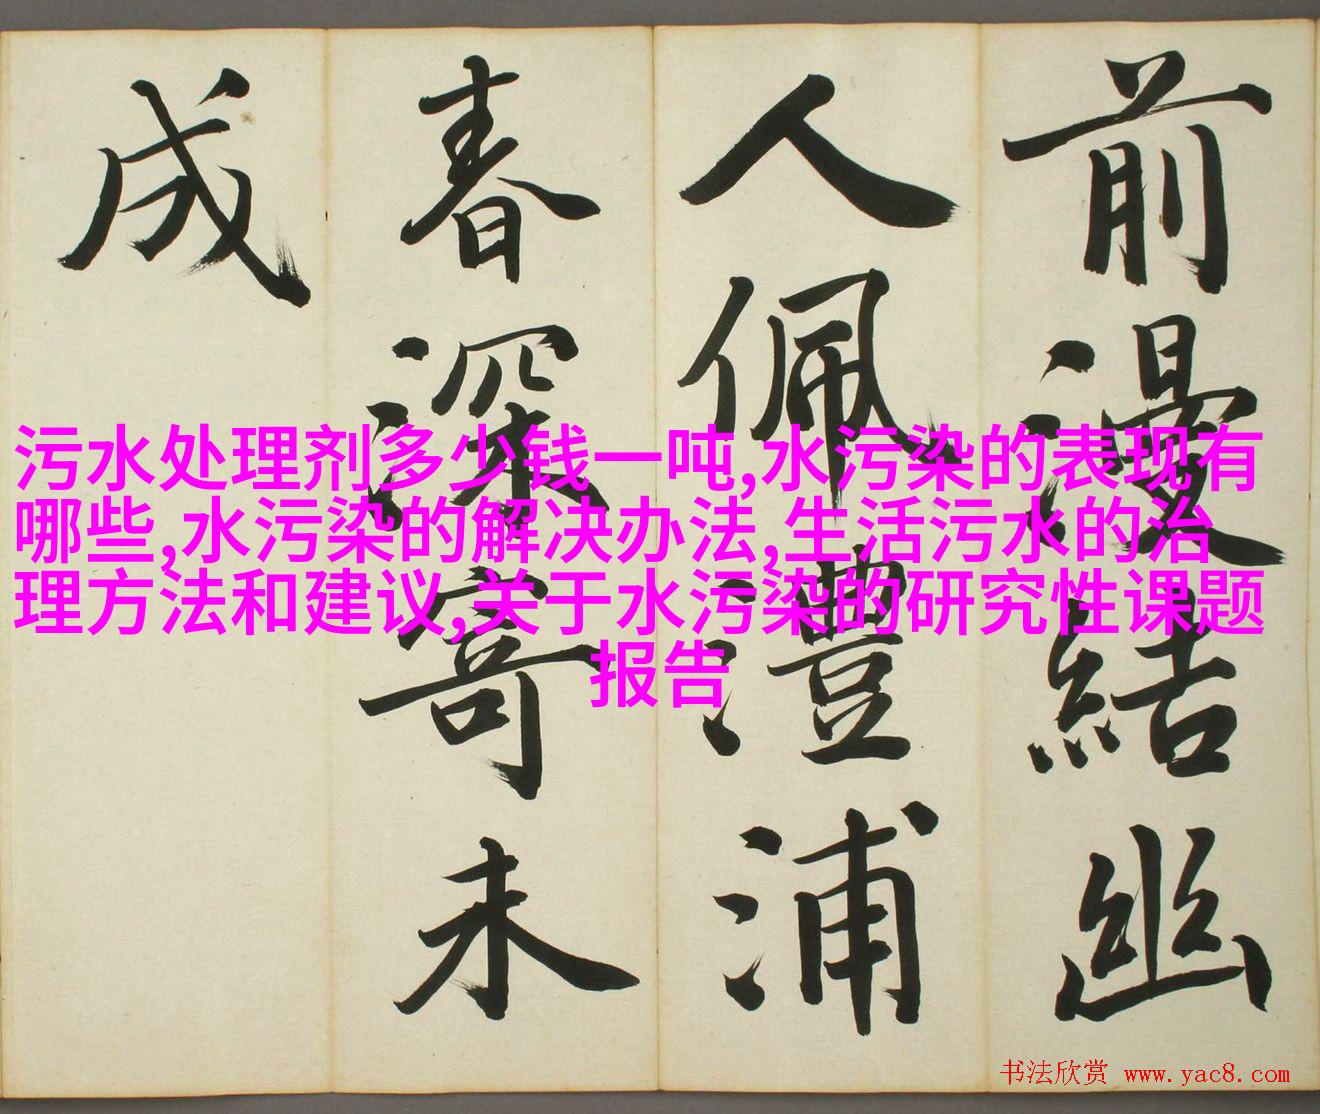 前漫結幽
人佩澧浦
春深寄未
成
污水处理剂多少钱一吨,水污染的表现有
哪些,水污染的解决办法,生活污水的治
理方法和建议,关于水污染的研究性课题
报告
书法欣赏 www.yac8.com